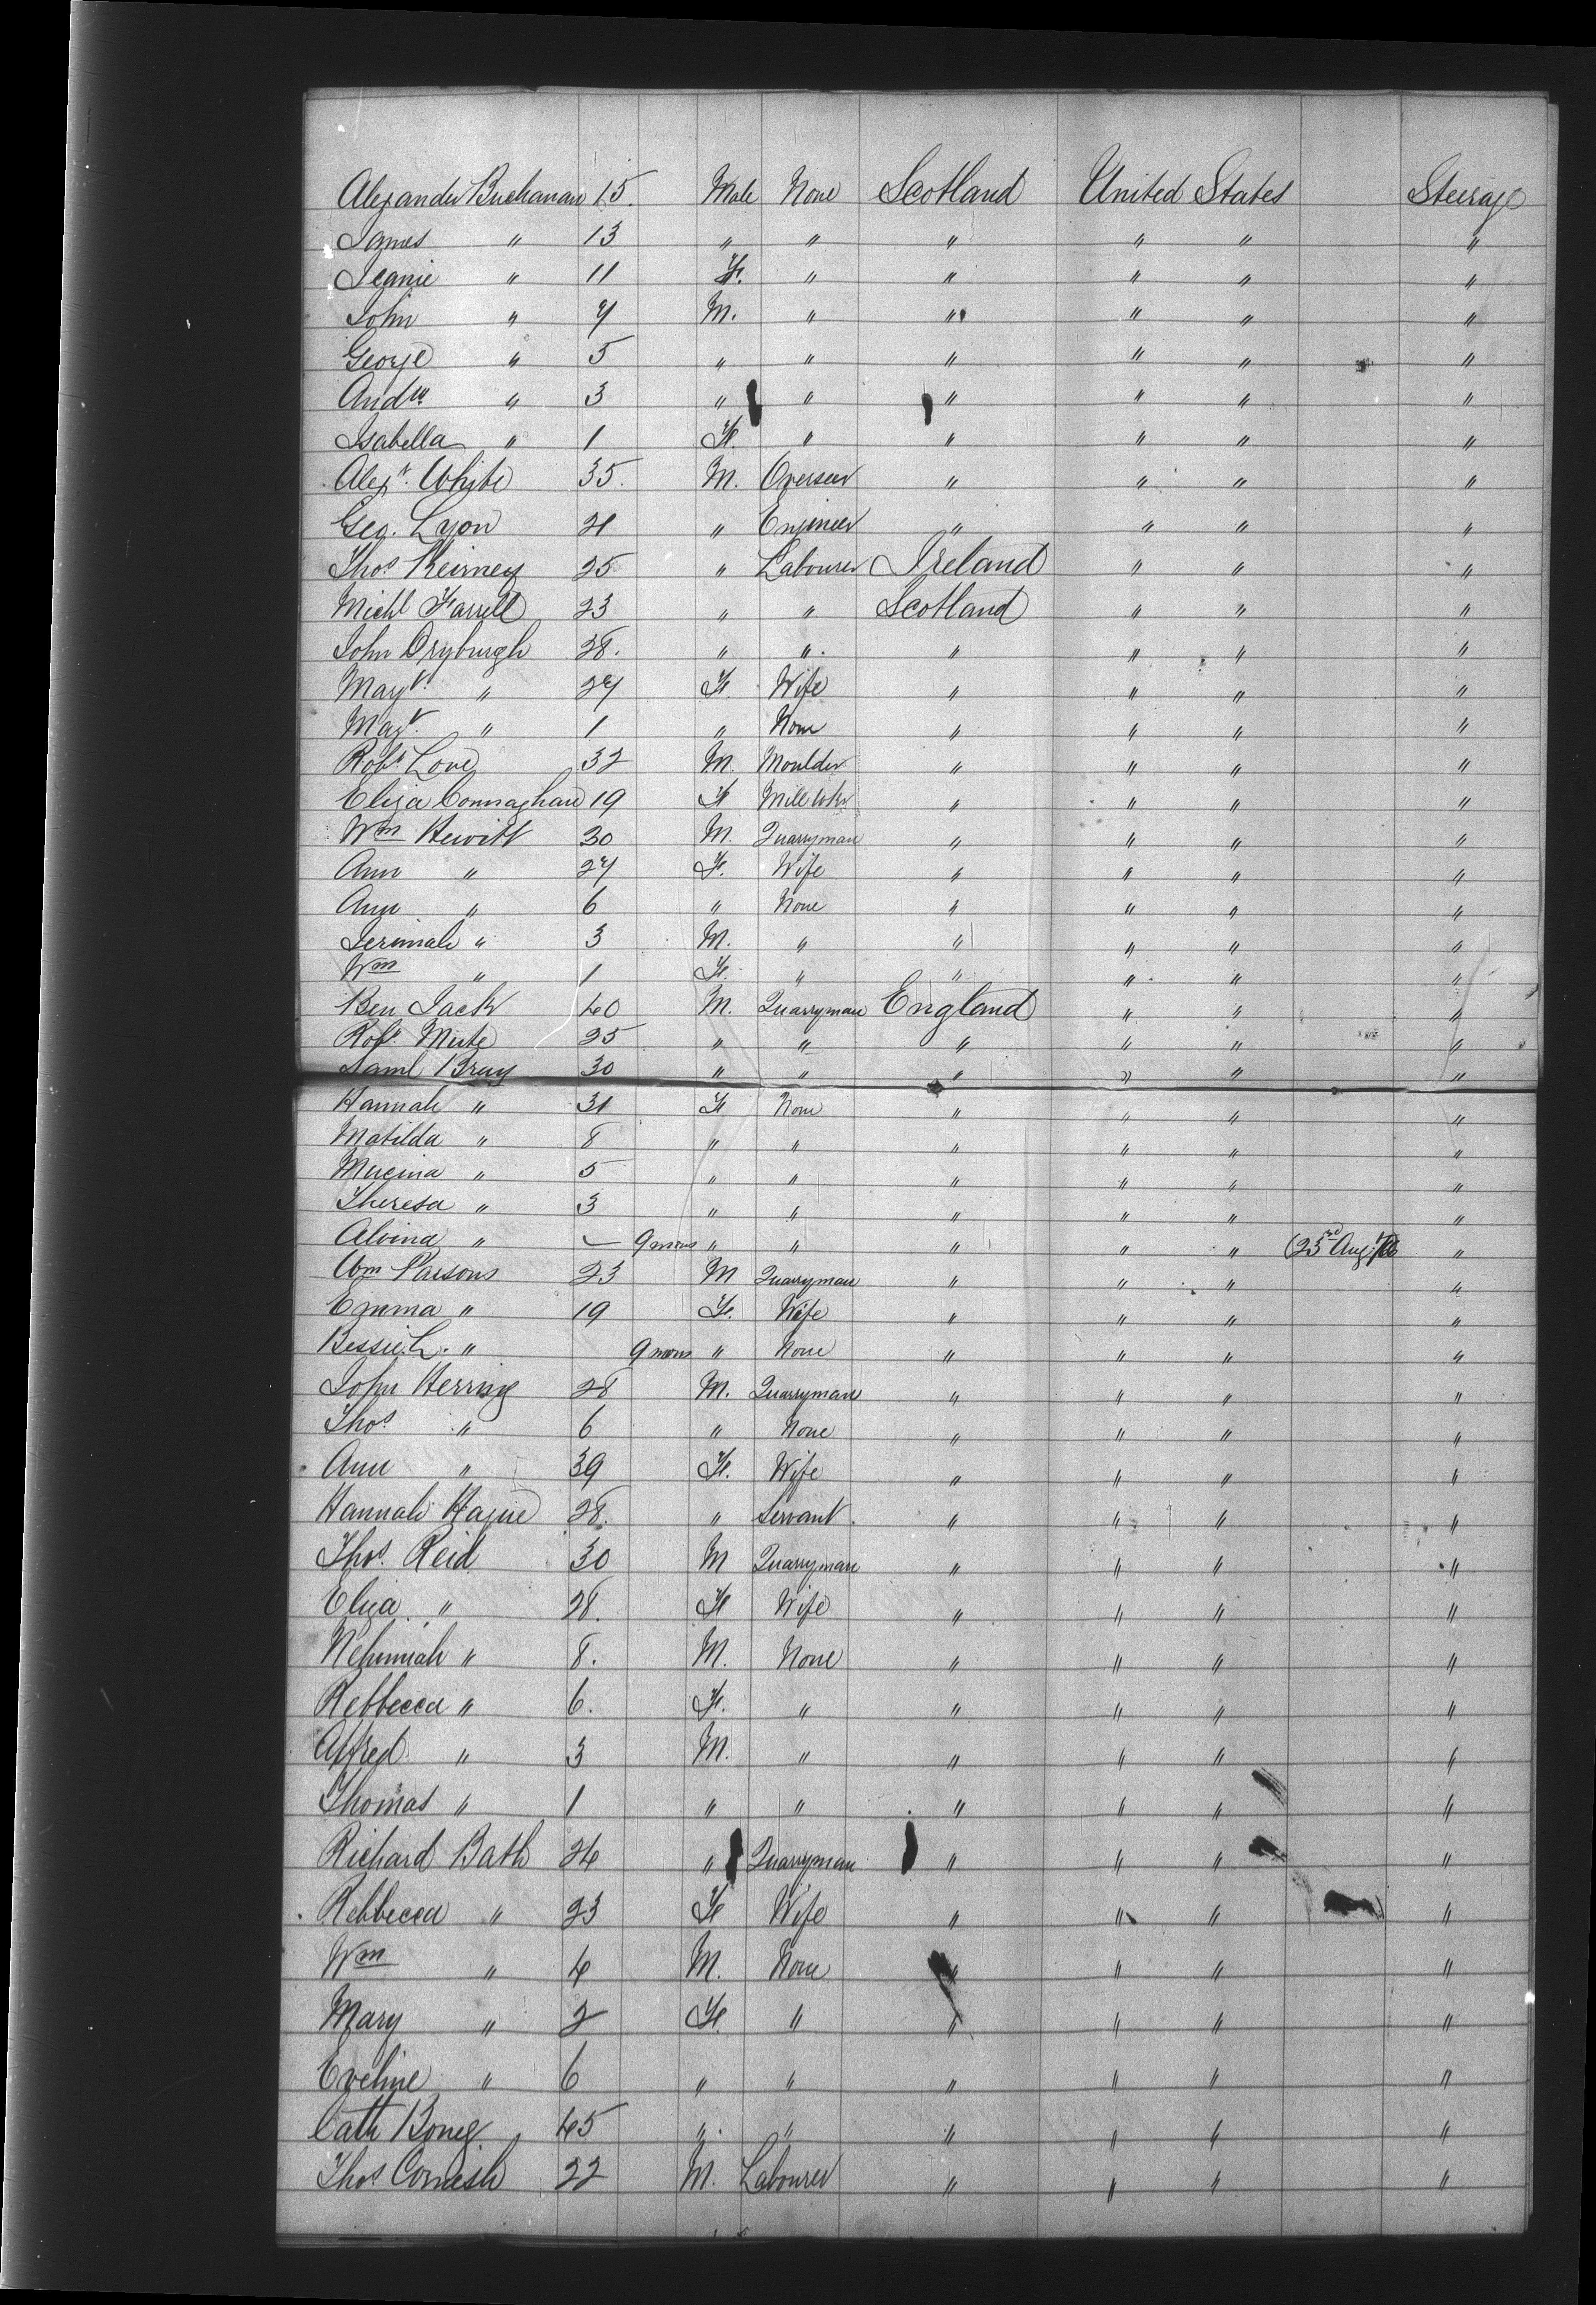 Alexander Buchanan 15. Male None Scotland United States Steerage
James " 13 " " " " " "
Jeanie " 11 F. " " " " "
John " 7 M. " " " " "
George " 5 " " " " " "
Andw " 3 " " " " " "
Isabella " 1 F. " " " " "
Alexr. White 35. M. Overseer " " " "
Geo. Lyon 21 " Engineer " " " "
Thos Keirney 25 " Labourer Ireland " " "
Michl Farrell 23 " " Scotland " " "
John Dryburgh 28. " " " " " "
Magt. " 27 F. Wife " " " "
Magt. " 1 " None " " " "
Robt Love 32 M. Moulder " " " "
Eliza Connaghan 19 F Mill Wkr " " " "
Wm Hewitt 30 M. Quarryman " " " "
Ann " 27 F. Wife " " " "
Ann " 6 " None " " " "
Jerimah " 3 M. " " " " "
Wm " 1 F. " " " " "
Ben Jack 40 M. Quarryman England " " "
Robt. 25 " " " " " "
Saml Bray 30 " " " " " "
Hannah " 31 F None " " " "
Matilda " 8 " " " " " "
" 5 " " " " " "
Theresa " 3 " " " " " "
Alvina " – 9 mons " " " " " (23rd Aug. "
Wm Parsons 23 M Quarryman " " " "
Emma " 19 F. Wife " " " "
Bessie L. " 9 mons " None " " " "
John Herring 28 M. Quarryman " " " "
Thos " 6 " None " " " "
Ann " 39 F. Wife " " " "
Hannah Hague 28. " Servant. " " " "
Thos. Reid 30 M Quarryman " " " "
Eliza " 28. F Wife " " " "
Nehimiah " 8. M. None " " " "
Rebbecca " 6. F. " " " " "
Alfred " 3 M. " " " " "
Thomas " 1 " " " " " "
Richard Bath 24 " Quarryman " " " "
Rebbecca " 23 F Wife " " " "
Wm " 4 M. None " " " "
Mary " 2 F. " " " " "
Eveline " 6 " " " " " "
Cath Boney 45 " " " " " "
Thos Cornish 22 M. Labourer " " " "